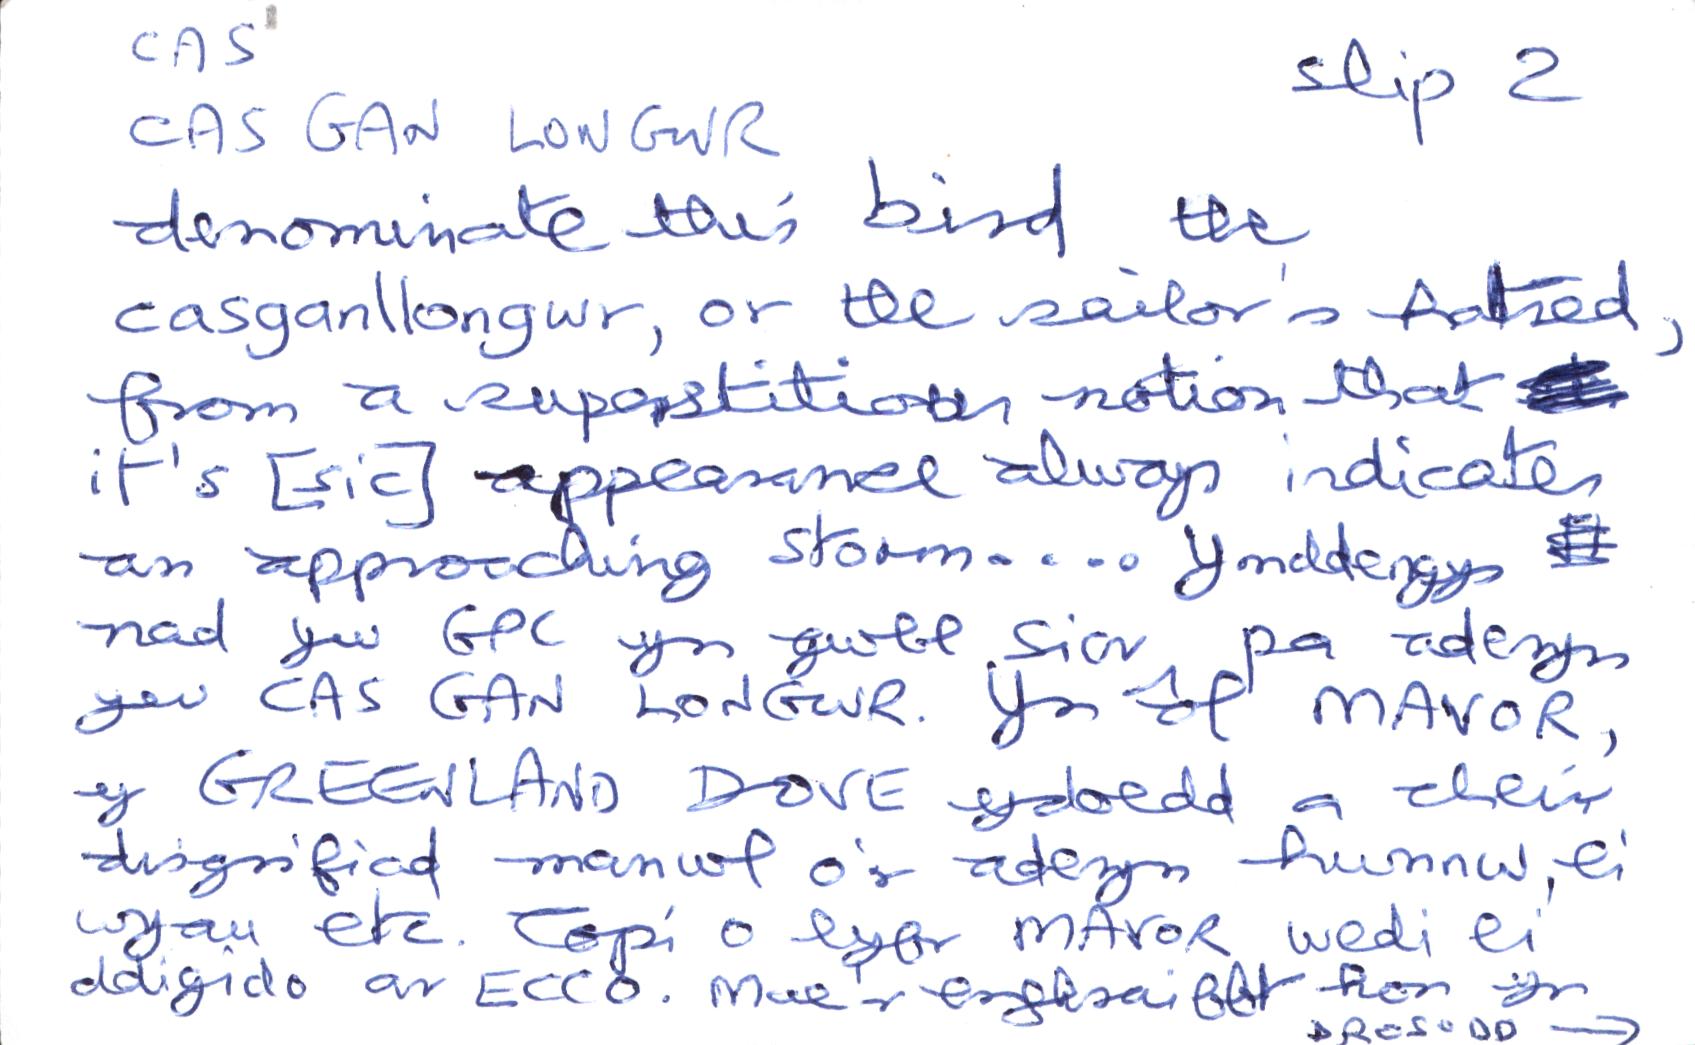 CAS'
slip 2
CAS GAN LONGWR
denominate this bird the
casganllongwr, or the sailor's hatred,
from a superstitious notion that
it's [sic] appearance always indicates
an approaching storm.... Ymddengys
nad yw GPC yn gwbl sicr pa aderyn
yw CAS GAN LONGWR. Yn ôl MAVOR,
y GREENLAND DOVE ydoedd a cheir
disgrifiad manwl o'r aderyn hwnnw, ei
wyau etc. Copi o lyfr MAVOR wedi ei
ddigido ar ECCO. Mae'r enghraifft hon yn
DROSODD →